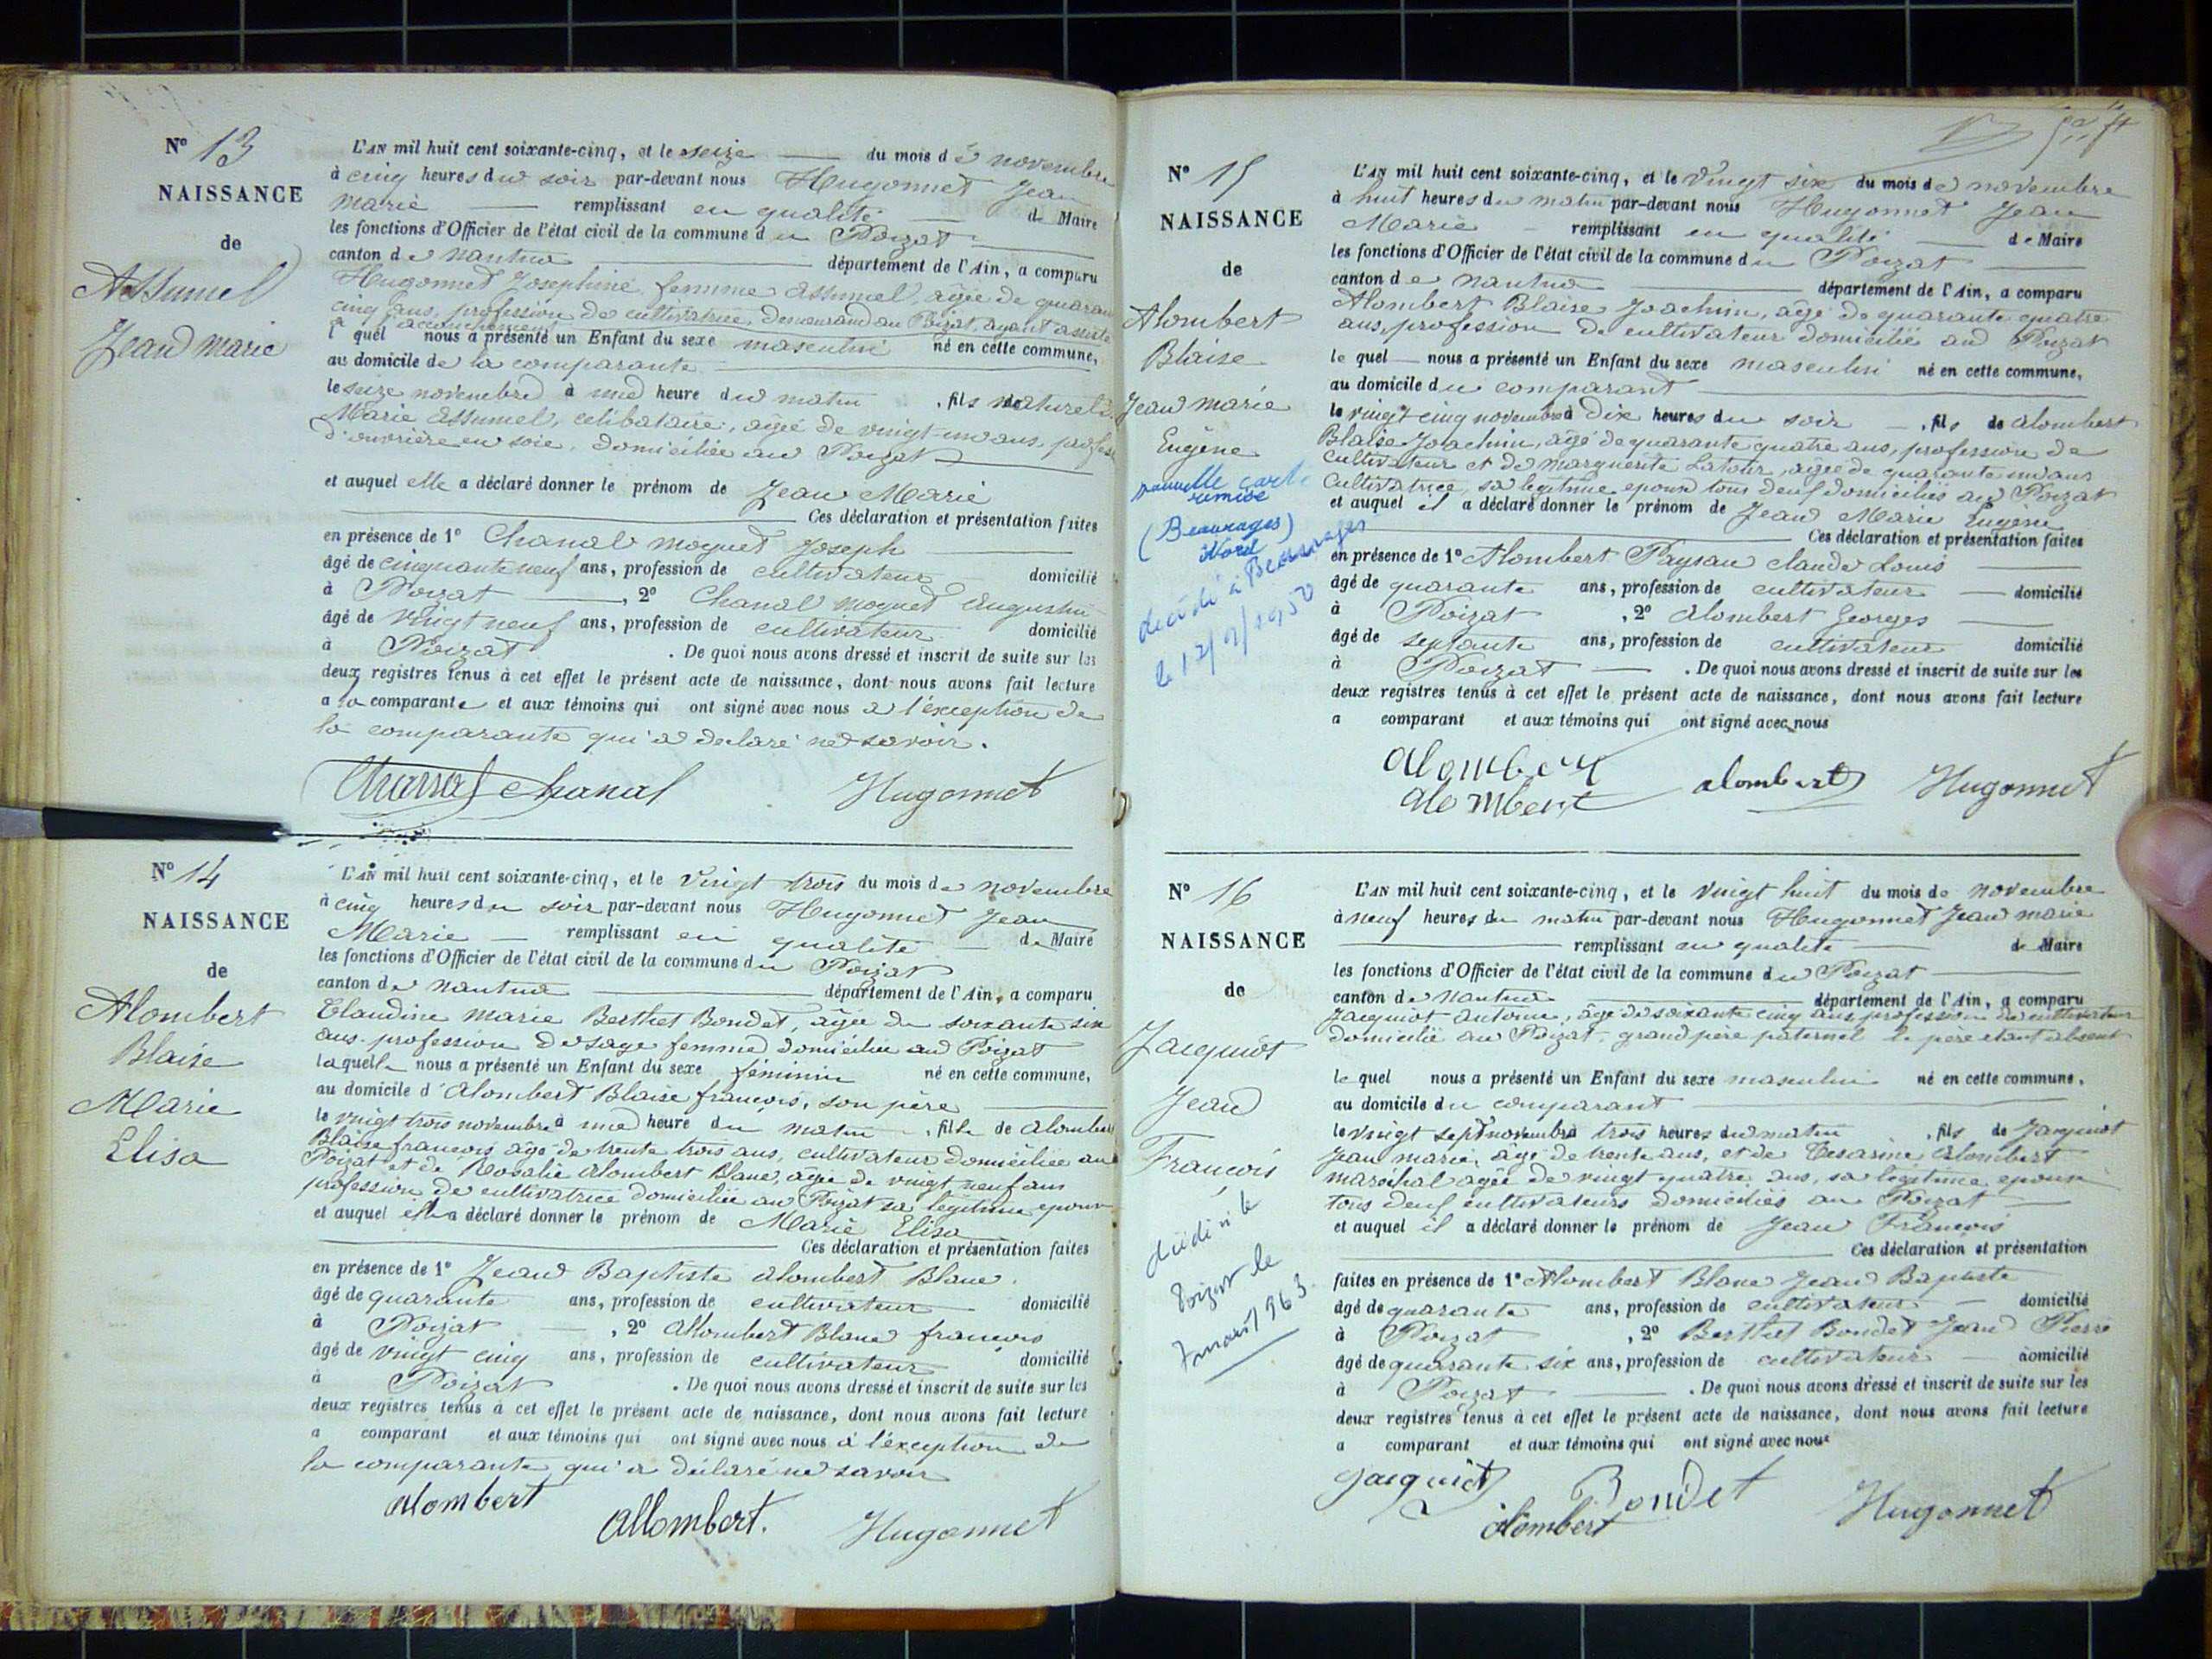 N° 13
NAISSANCE
de
Assumel
Jean marie
L'AN mil huit cent soixante-cinq, et le seize du mois de novembre
à cinq heures du soir par-devant nous Hugonnet Jean
marie remplissant en qualité de Maire
les fonctions d'Officier de l'état civil de la commune du Poizat
canton de nantua département de l'Ain, a comparu
Hugonnet Josephine femme assumel, agée de quarante
cinq ans, profession de cultivatrice, demeurand au Poizat, ayant assisté
l'accouchement
l quel nous a présenté un Enfant du sexe masculin né en cette commune,
au domicile de la comparante
le seize novembre à une heure du matin , fils naturel de
Marie assumel, celibataire, agée de vingt-un ans, profess
d'ouvrière en soie, domiciliée au Poizat
et auquel elle a déclaré donner le prénom de Jean Marie
Ces déclaration et présentation faites
en présence de 1° Chanal moguet Joseph
âgé de cinquante neuf ans, profession de cultivateur domicilié
à Poizat , 2° Chanal moguet augustin
âgé de vingt neuf ans, profession de cultivateur domicilié
à Poizat . De quoi nous avons dressé et inscrit de suite sur les
deux registres tenus à cet effet le présent acte de naissance, dont nous avons fait lecture
a la comparante et aux témoins qui ont signé avec nous à l'exception de
la comparante qui a declaré ne savoir.
Chanal chanal Hugonnet
N° 14
NAISSANCE
de
Alombert
Blaise
Marie
Elisa
L'AN mil huit cent soixante-cinq, et le vingt trois du mois de novembre
à cinq heures du soir par-devant nous Hugonnet Jean
Marie remplissant en qualité de Maire
les fonctions d'Officier de l'état civil de la commune du Poizat
canton de nantua département de l'Ain, a comparu
Claudine marie Berthet Bondet, âgée de soixante six
ans profession de sage femme domiciliée au Poizat
laquelle nous a présenté un Enfant du sexe féminin né en cette commune,
au domicile d'alombert Blaise francois, son père
le vingt trois novembre à une heure du matin , fille de alombert
Blaise francois âgé de trente trois ans, cultivateur domiciliée au
Poizat et de Rosalie alombert Blanc, agée de vingt neuf ans
profession de cultivatrice domiciliée au Poizat sa légitime epouse
et auquel elle a déclaré donner le prénom de Marie Elisa
Ces déclaration et présentation faites
en présence de 1° Jean Baptiste alombert Blanc
âgé de quarante ans, profession de cultivateur domicilié
à Poizat , 2° allombert Blanc francois
âgé de vingt cinq ans, profession de cultivateur domicilié
à Poizat . De quoi nous avons dressé et inscrit de suite sur les
deux registres tenus à cet effet le présent acte de naissance, dont nous avons fait lecture
a comparant et aux témoins qui ont signé avec nous à l'exception de
la comparante qui a déclaré ne savoir
alombert allombert. Hugonnet
N° 15
NAISSANCE
de
Alombert
Blaise
Jean marie
Eugène
nouvelle carte
remise
(Beauvages)
Nord
décédé à
le 17/9/1950
L'AN mil huit cent soixante-cinq, et le vingt six du mois de novembre
à huit heures du matin par-devant nous Hugonnet Jean
Marie remplissant en qualité de Maire
les fonctions d'Officier de l'état civil de la commune du Poizat
canton de nantua département de l'Ain, a comparu
Alombert Blaise Joachim, âgé de quarante quatre
ans, profession de cultivateur domicilié au Poizat
le quel nous a présenté un Enfant du sexe masculin né en cette commune,
au domicile du comparant
le vingt-cinq novembre à dix heures du soir , fils de alombert
Blaise Joachim, âgé de quarante quatre ans, profession de
cultivateur et de marguerite Latour, agée de quarante un ans
cultivatrice, sa legitime epouse tous deux domiciliés au Poizat
et auquel il a déclaré donner le prénom de Jean Marie Eugène
Ces déclaration et présentation faites
en présence de 1° Alombert Paysan claude Louis
âgé de quarante ans, profession de cultivateur domicilié
à Poizat , 2° alombert Georges
âgé de septante ans, profession de cultivateur domicilié
à Poizat . De quoi nous avons dressé et inscrit de suite sur les
deux registres tenus à cet effet le présent acte de naissance, dont nous avons fait lecture
a comparant et aux témoins qui ont signé avec nous
alombert
alombert alombert Hugonnet
N° 16
NAISSANCE
de
Jacquiot
Jean
Francois
décédé le
Poizat le
7 mars 1963
L'AN mil huit cent soixante-cinq, et le vingt huit du mois de novembre
à neuf heures du matin par-devant nous Hugonnet Jean marie
remplissant en qualité de Maire
les fonctions d'Officier de l'état civil de la commune du Poizat
canton de Nantua département de l'Ain, a comparu
Jacquiot antoine, âgé de soixante cinq ans profession de cultivateur
domicilié au Poizat, grand père paternel le père etant absent
le quel nous a présenté un Enfant du sexe masculin né en cette commune,
au domicile du comparant
le vingt sept novembre à trois heures du matin , fils de Jacquiot
Jean marie, âgé de trente ans, et de Cesarine alombert
maréchal agée de vingt quatre ans, sa légitime epouse
tous deux cultivateurs domiciliés au Poizat
et auquel il a déclaré donner le prénom de Jean Francois
Ces déclaration et présentation
faites en présence de 1° Alombert Blanc Jean Baptiste
âgé de quarante ans, profession de cultivateur domicilié
à Poizat , 2° Berthet Bondet Jean Pierre
âgé de quarante six ans, profession de cultivateur domicilié
à Poizat . De quoi nous avons dressé et inscrit de suite sur les
deux registres tenus à cet effet le présent acte de naissance, dont nous avons fait lecture
a comparant et aux témoins qui ont signé avec nous
Jacquiot Bondet
alombert Hugonnet